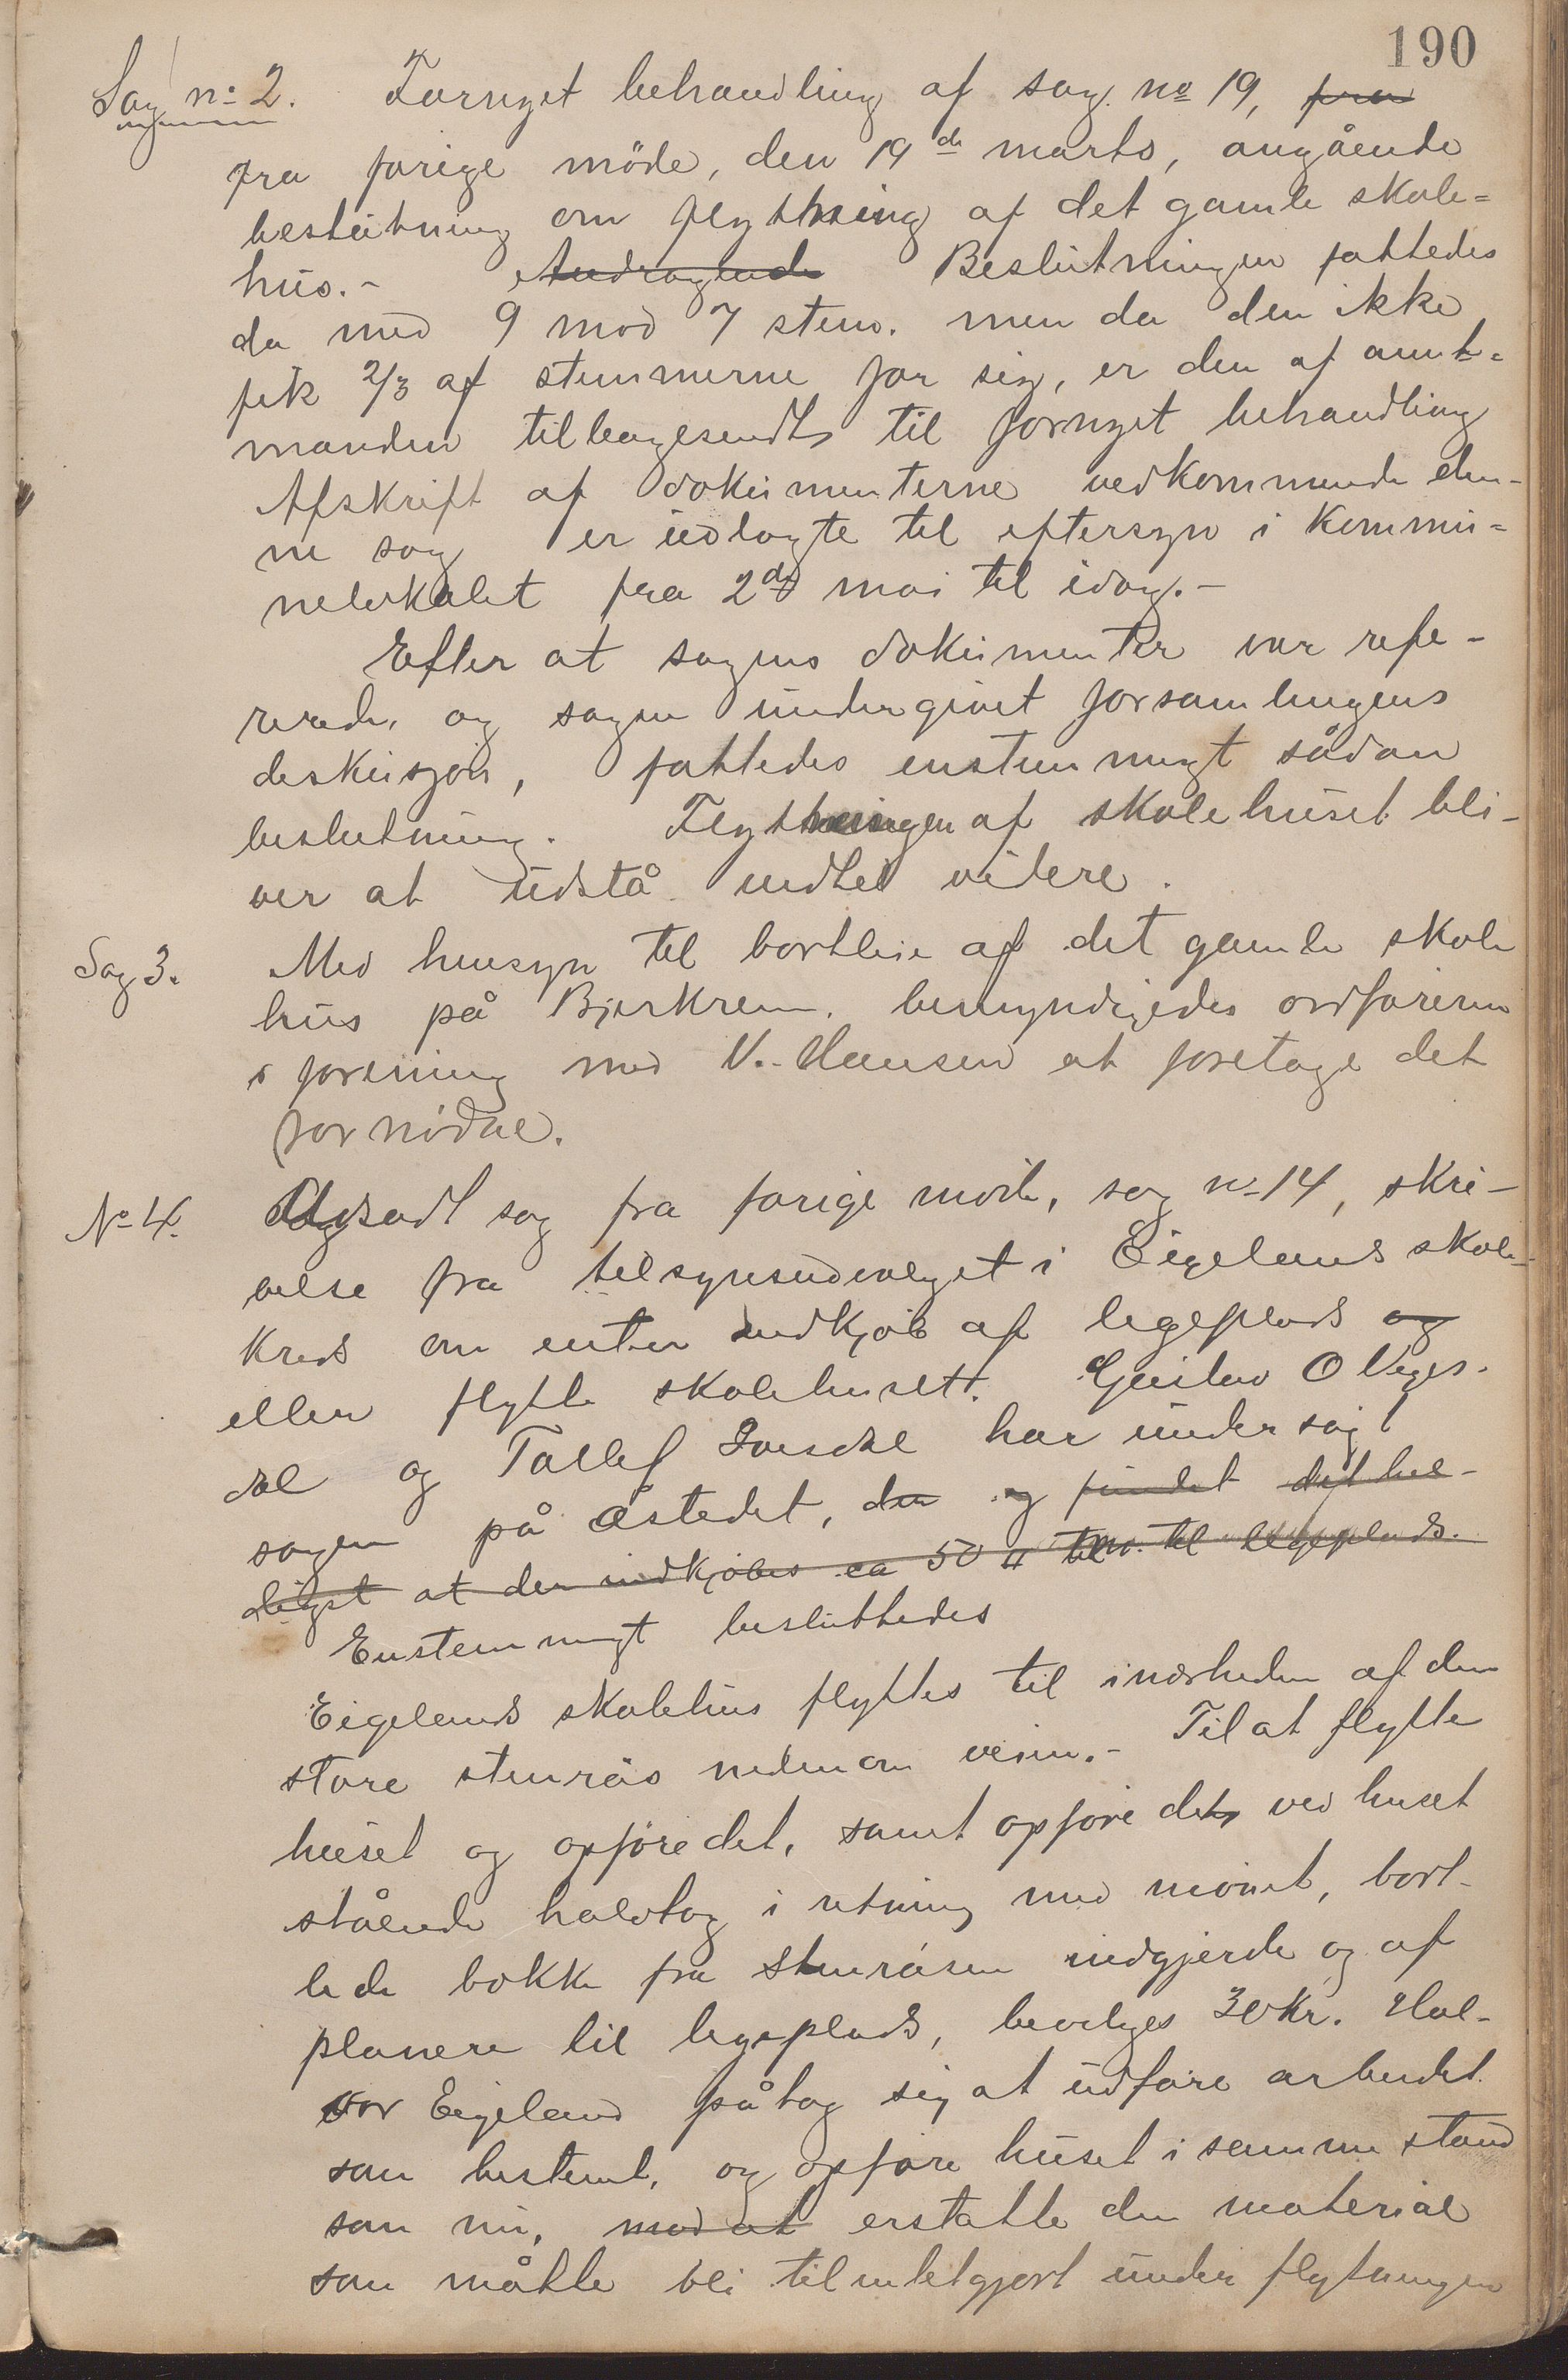 190
Sag no 2. Fornyet behandling af sag no 19, fra
fra forige möde, den 19de marts, angående
beslutning om flytning af det gamle skole=
hus.- Andragende Beslutningen fattedes
da med 9 mod 7 stem. men da den ikke
fik 2/3 af stemmerne for sig, er den af amt=
manden tilbagesendt til fornyet behandling
Afskrift af dokumenterne vedkommende den-
ne sag er udlagte til eftersyn i kommu=
nelokalet fra 2de mai til idag.-
Efter at sagens dokumenter var refe-
rerede, og sagen undergivet forsamlingens
deskusjon, fattedes enstemmigt sådan
beslutning. Flytningen af skolehuset bli-
ver at udstå indtil videre.
Sag 3. Med hensyn til bortleie af det gamle skole
hus på Bjerkrem, bemyndigedes ordföreren
i forening med V. Hansen at foretage det
fornödne.
No 4. Udsadt sag fra forige möde, sag no 14, skri-
velse fra tilsynsudvalget i Eigelands skole-
kreds om enten indkjöb af legeplads og
eller flytte skolehuset. Gustav O Veges-
dal og Tollef Ivesdal har undersögt
sagen på åstedet, den og findet det hel-
digst at der indkjöbes ca 50 til legeplads.
Enstemmigt besluttedes
Eigelands skolehus flyttes til i nærheden af den
store stenrös nedenom veien.- Til at flytte
huset og opföre det, samt opföre det ved huset
stående halvtag i retning med mönet, bort-
lede bekken fra stenrösen indgjerde og af
planere til legeplads, beviliges 30 kr. Hal-
vor Eigeland påtog sig at udföre arbeidet
som bestemt, og opföre huset i samme stand
som nu, mod at erstatte den material
som måtte bli tilintetgjort under flytningen